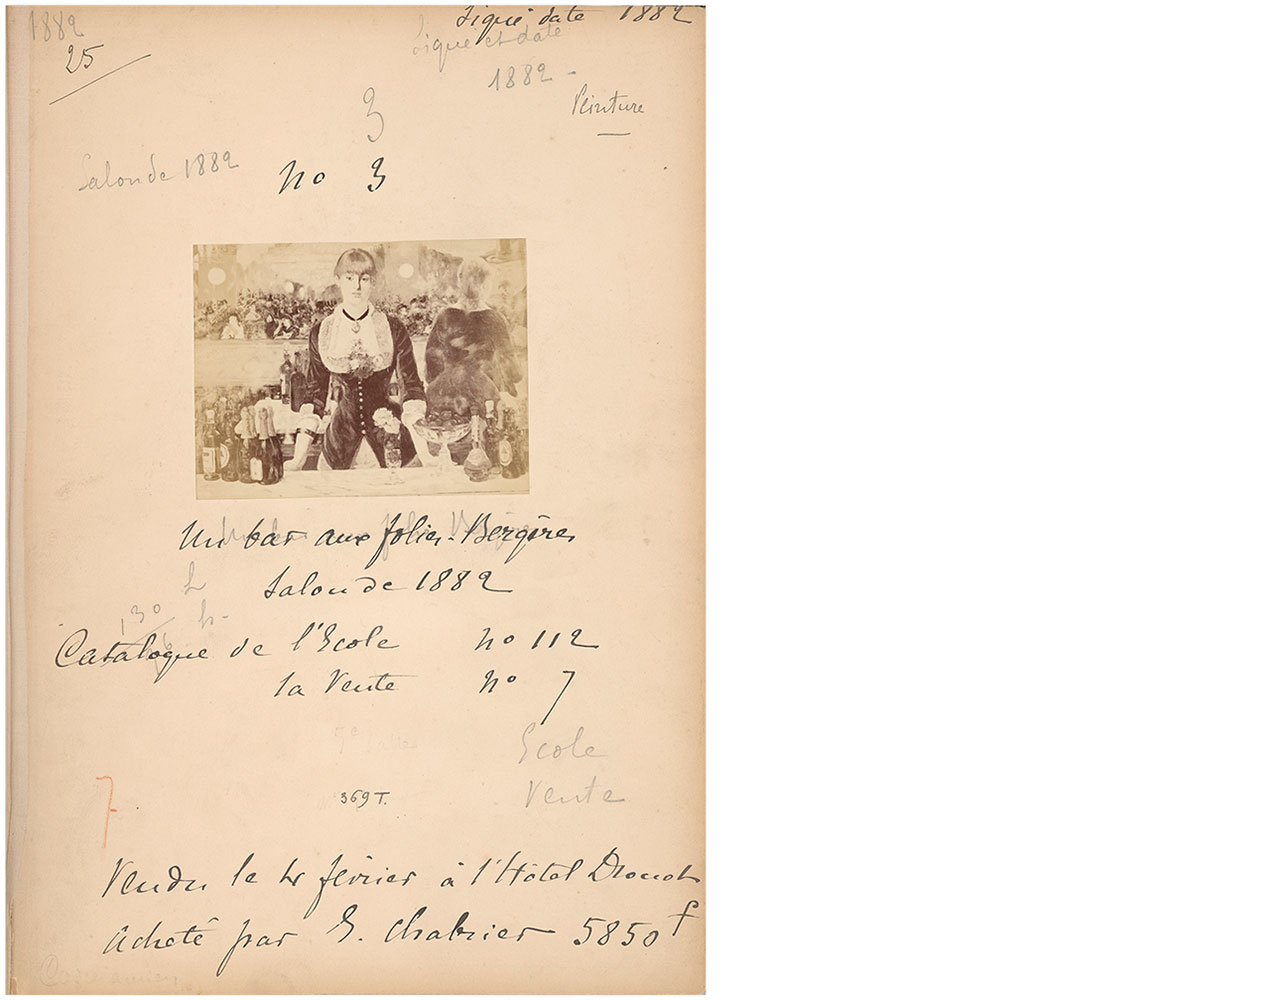 1882
Signé daté 1882
25
Signé et daté
1882 -
Peinture
3
Salon de 1882
no 3
Un bar aux folies-Bergères
Salon de 1882
130
Catalogue de l'Ecole no 112
la Vente no 7
Ecole
7
369 T.
Vente
Vendu le 4 février à l'Hôtel Drouot
Acheté par E. Chabrier 5850 f